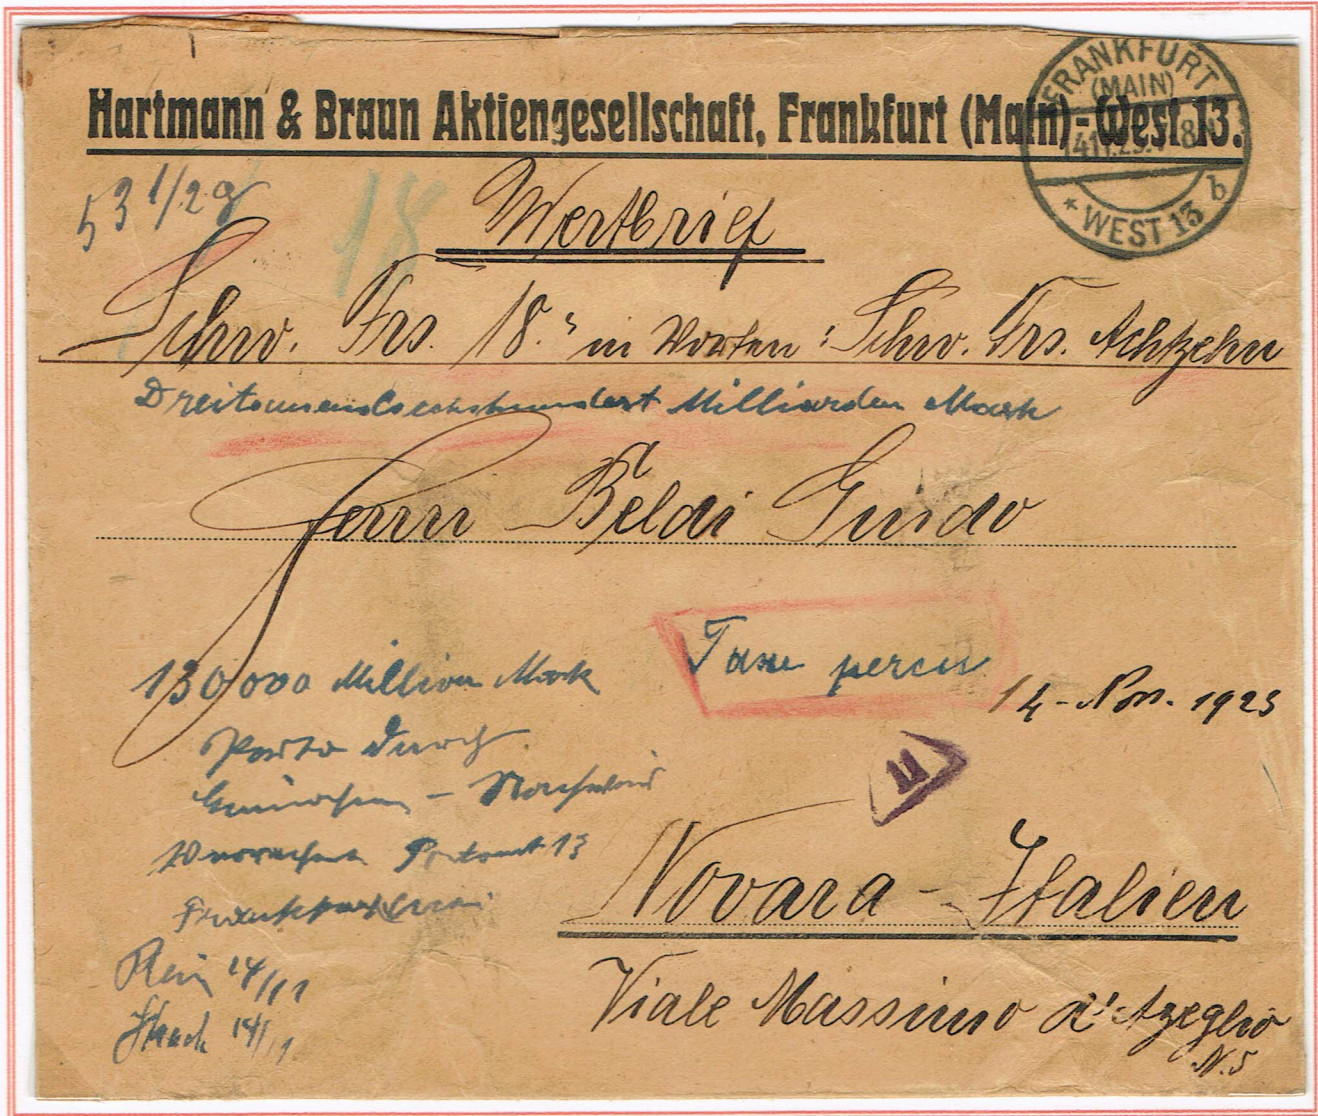 Hartmann & Braun Aktiengesellschaft, Frankfurt (Main)-West 13.
FRANKFURT
(MAIN)
14.11.23. 8
* WEST 13 b
53 1/2 g
18
Wertbrief
Schw. Frs. 18.- in Worten: Schw. Frs. Achtzehn
Dreitausendsechshundert Milliarden Mark
Beldi Guido
Taxe percu
130000 Million Mark
14 - Nov. 1923
Porto durch
Postamt 13
Novara - Italien
14/11
Viale Massimo d'Azeglio
14/11
N. 5